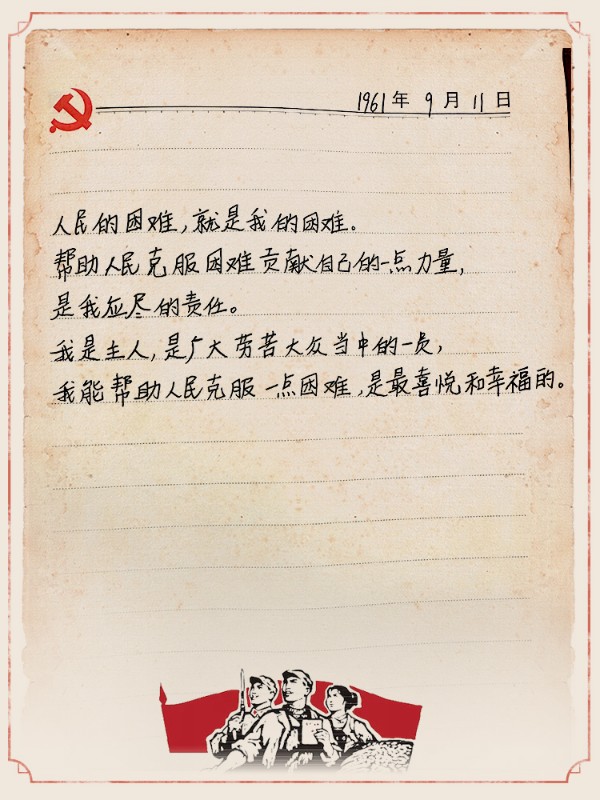 1961年 9月 11日
人民的困难,就是我的困难。
帮助人民克服困难贡献自己的一点力量,
是我应尽的责任。
我是主人,是广大劳苦大众当中的一员,
我能帮助人民克服一点困难,是最喜悦和幸福的。